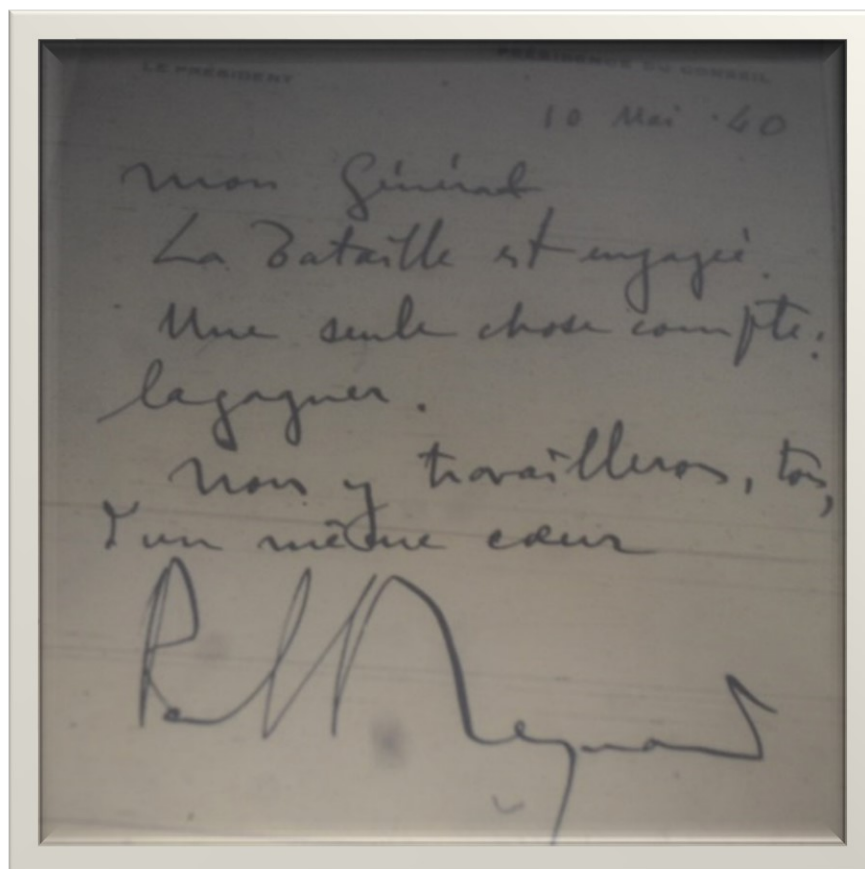 LE PRÉSIDENT
PRÉSIDENCE DU CONSEIL
10 Mai 40
Mon Général
La Bataille est engagée.
Une seule chose compte :
la gagner.
Nous y travaillerons, tous,
d'un même cœur
Paul Reynaud